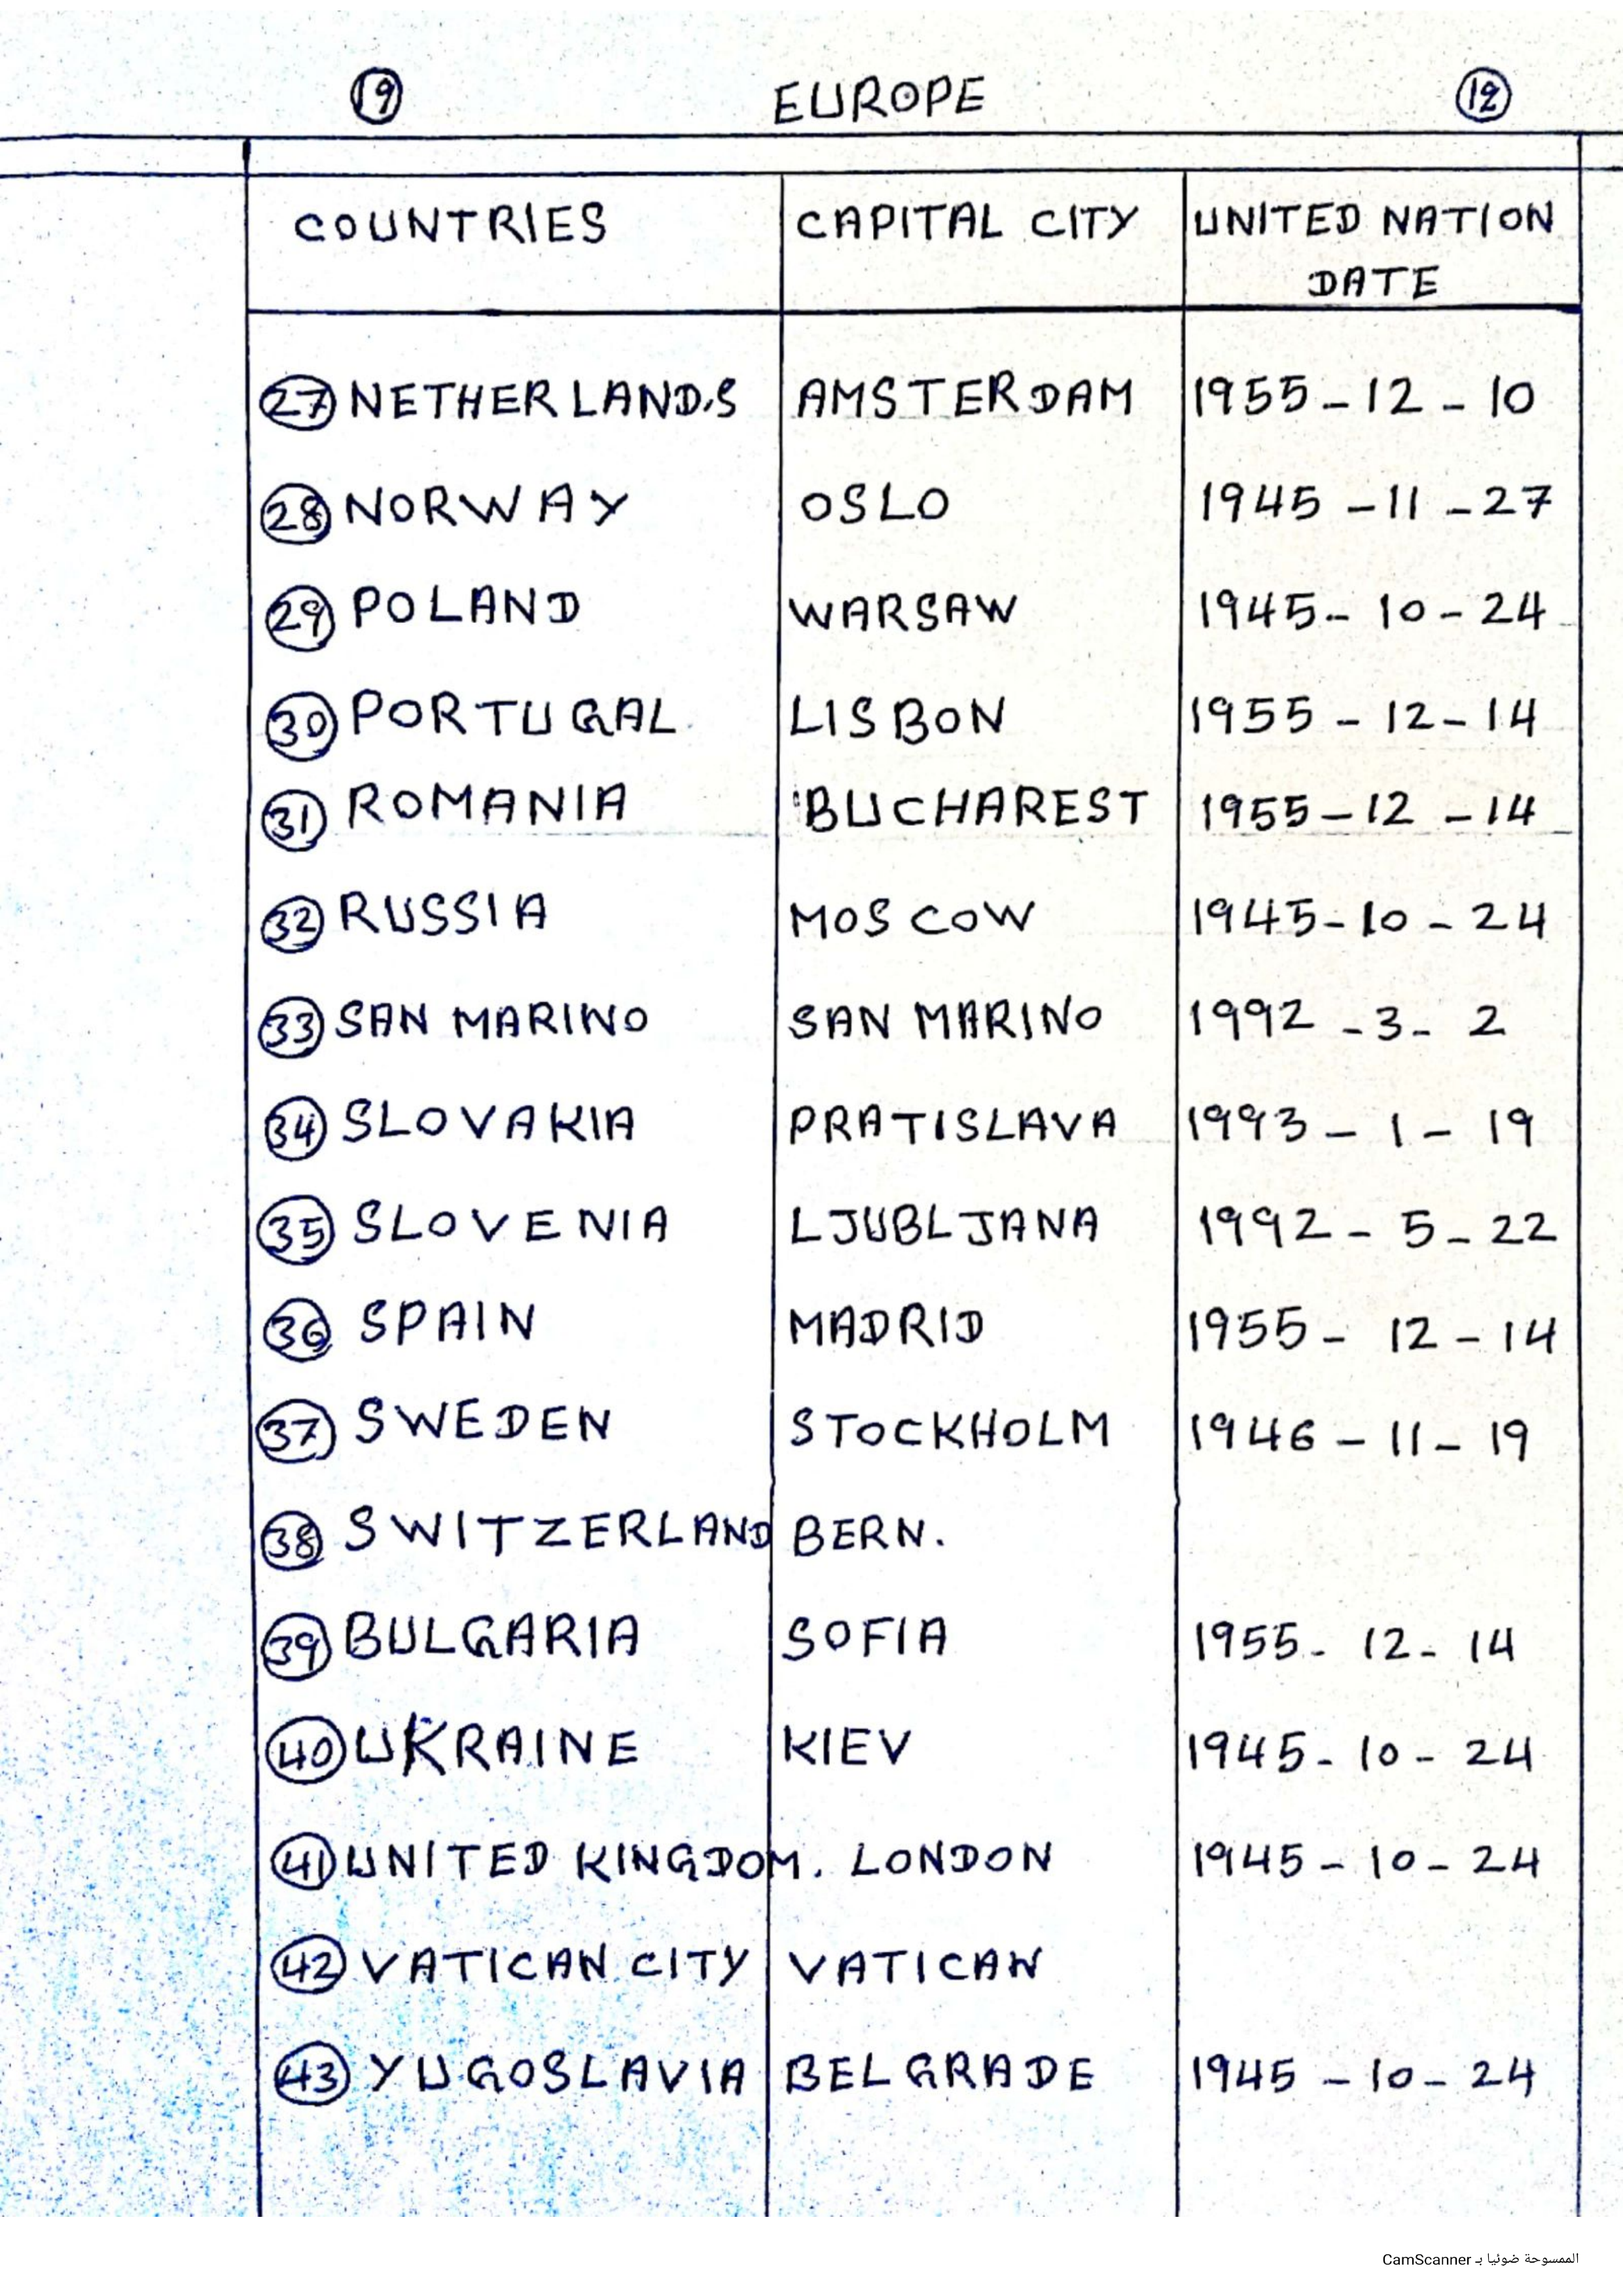 19 EUROPE 12
COUNTRIES CAPITAL CITY UNITED NATION
DATE
27 NETHERLANDS AMSTERDAM 1955-12-10
28 NORWAY OSLO 1945-11-27
29 POLAND WARSAW 1945-10-24
30 PORTUGAL LISBON 1955-12-14
31 ROMANIA BUCHAREST 1955-12-14
32 RUSSIA MOSCOW 1945-10-24
33 SAN MARINO SAN MARINO 1992-3-2
34 SLOVAKIA PRATISLAVA 1993-1-19
35 SLOVENIA LJUBLJANA 1992-5-22
36 SPAIN MADRID 1955-12-14
37 SWEDEN STOCKHOLM 1946-11-19
38 SWITZERLAND BERN.
39 BULGARIA SOFIA 1955-12-14
40 UKRAINE KIEV 1945-10-24
41 UNITED KINGDOM. LONDON 1945-10-24
42 VATICAN CITY VATICAN
43 YUGOSLAVIA BELGRADE 1945-10-24
الممسوحة ضوئيا بـ CamScanner